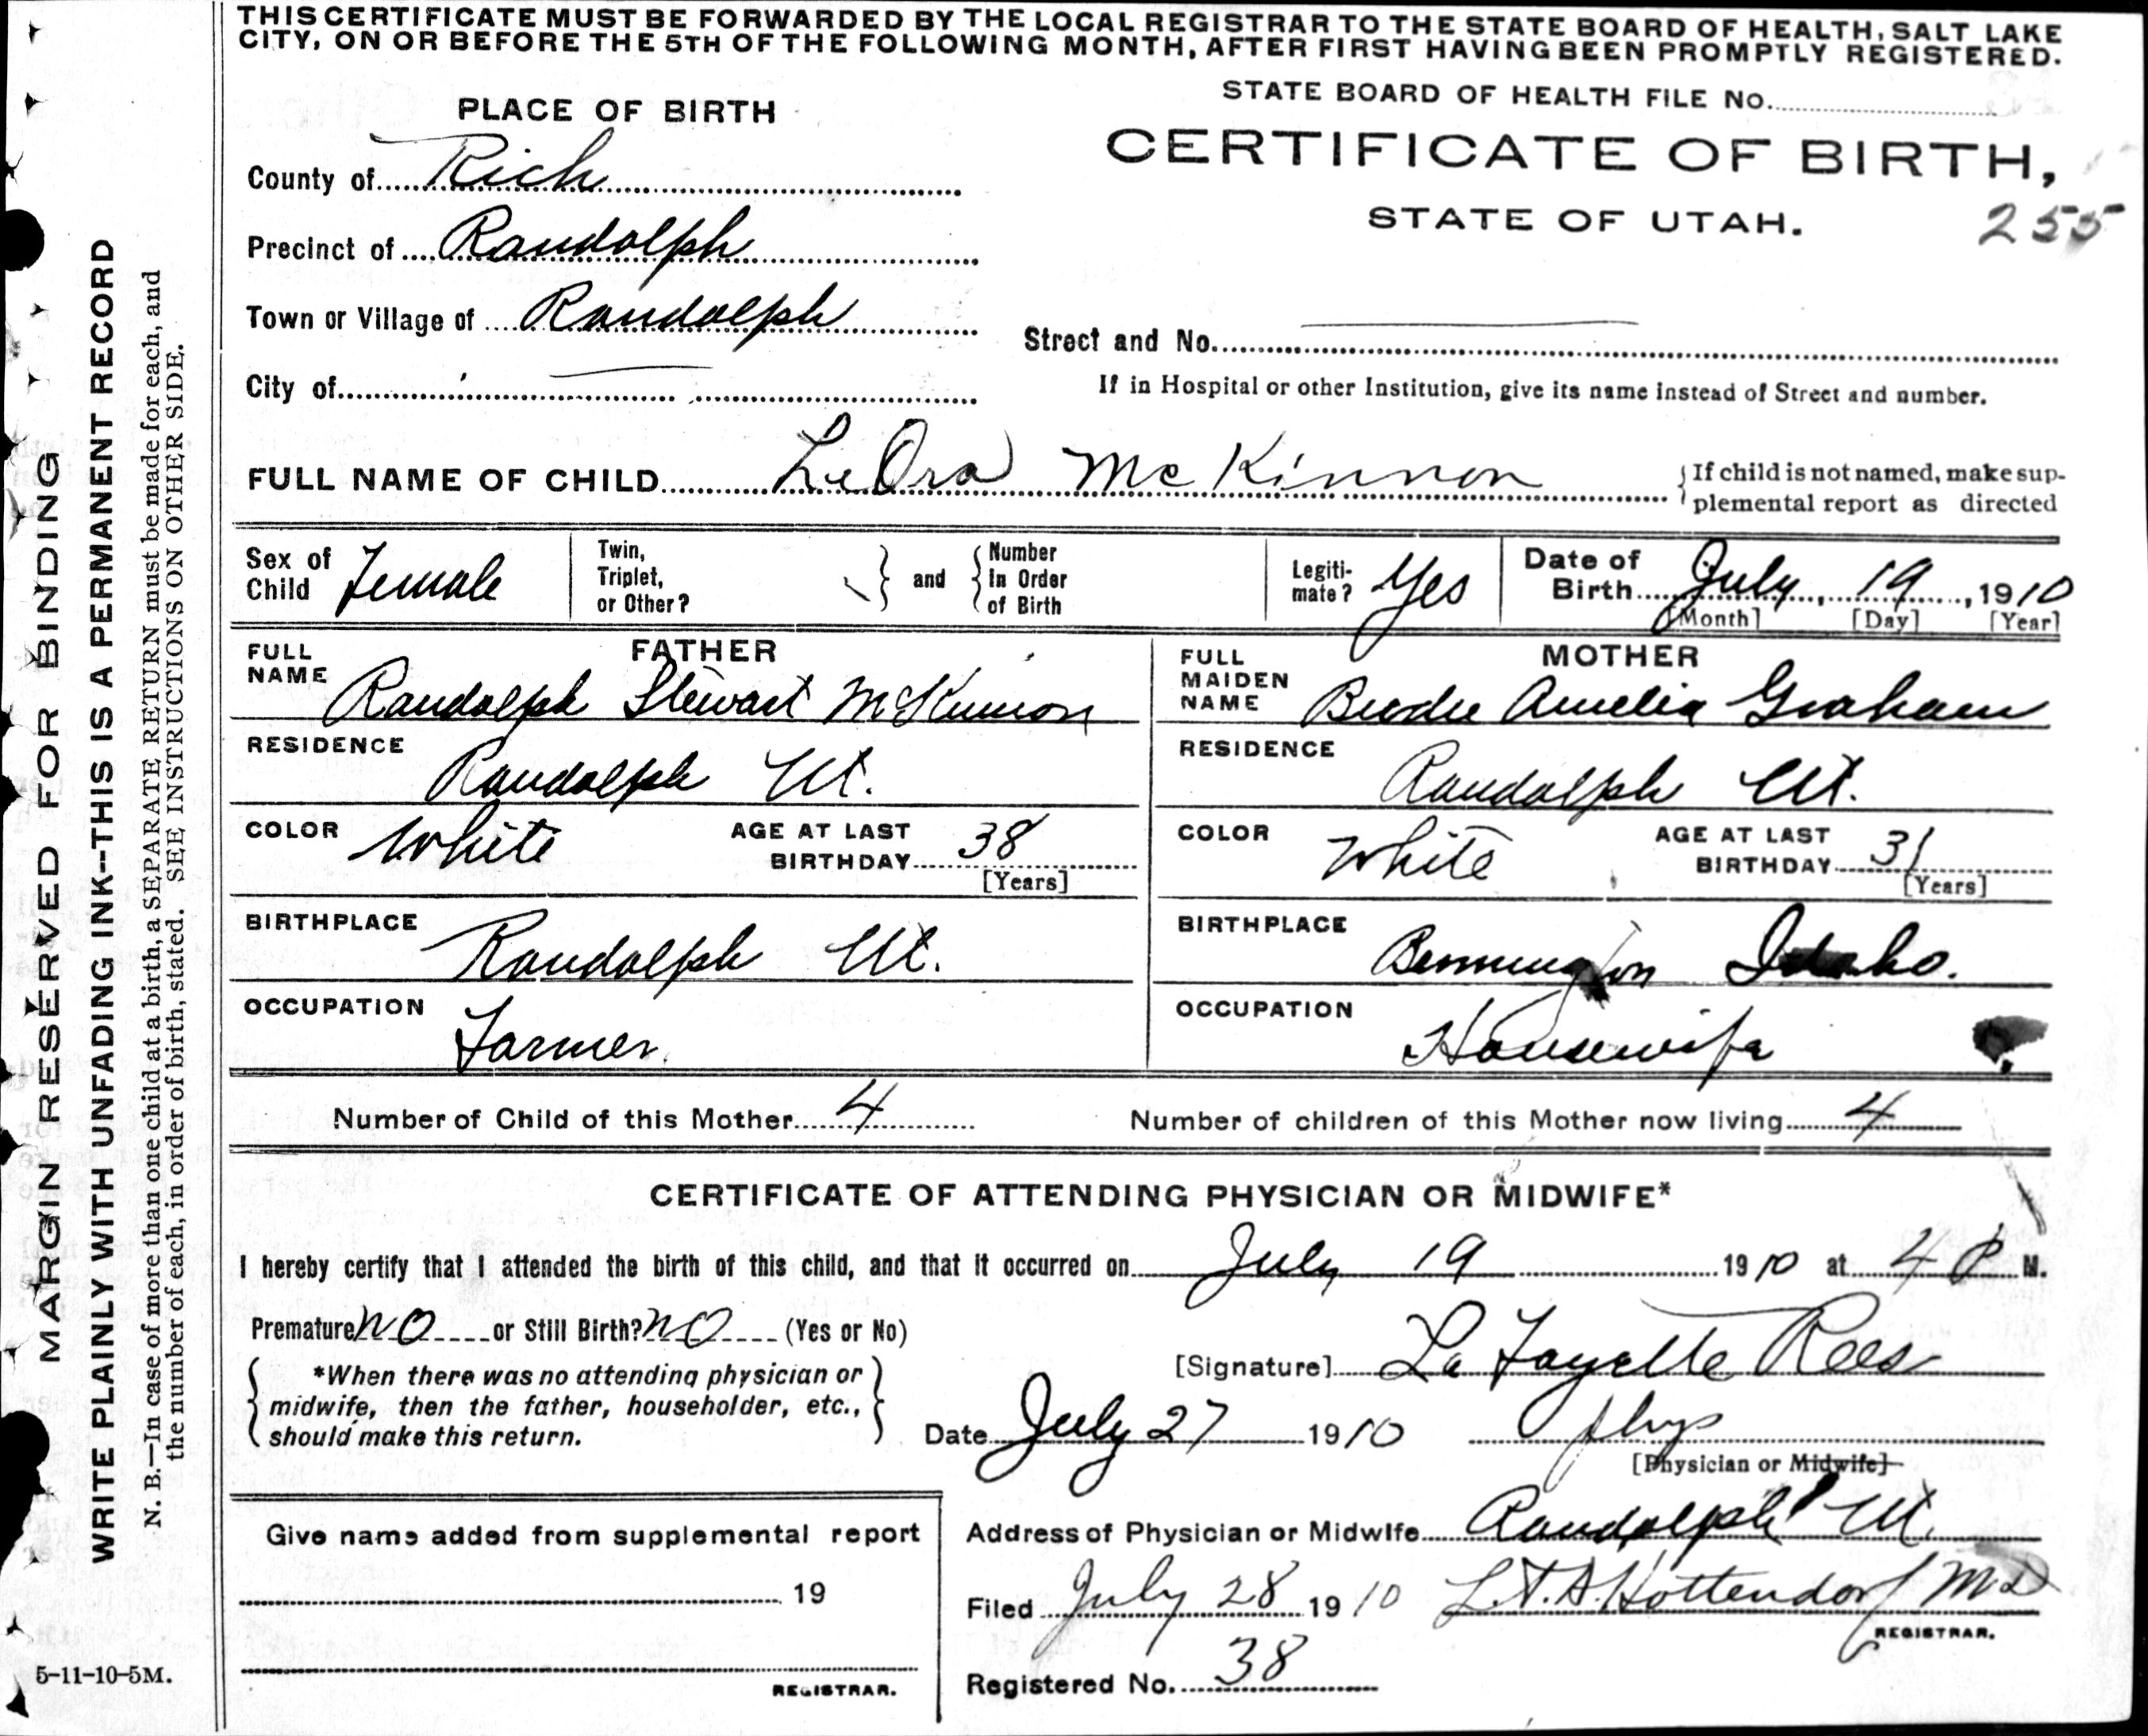 THIS CERTIFICATE MUST BE FORWARDED BY THE LOCAL REGISTRAR TO THE STATE BOARD OF HEALTH, SALT LAKE
CITY, ON OR BEFORE THE 5TH OF THE FOLLOWING MONTH, AFTER FIRST HAVING BEEN PROMPTLY REGISTERED.
STATE BOARD OF HEALTH FILE No.
PLACE OF BIRTH
CERTIFICATE OF BIRTH,
STATE OF UTAH.
255
County of Rich
Precinct of Randolph
Town or Village of Randolph
Street and No.
City of
If in Hospital or other Institution, give its name instead of Street and number.
FULL NAME OF CHILD LeOra McKinnon
If child is not named, make sup-
plemental report as directed
Sex of Child Female
Twin, Triplet, or Other?
and
Number in Order of Birth
Legiti-mate? Yes
Date of Birth July, 19, 1910
[Month] [Day] [Year]
FATHER
FULL NAME Randolph Stewart McKinnon
RESIDENCE
Randolph Ut.
COLOR White
AGE AT LAST BIRTHDAY 38
[Years]
BIRTHPLACE
Randolph Ut.
OCCUPATION
Farmer
MOTHER
FULL MAIDEN NAME Amelia Graham
RESIDENCE
Randolph Ut.
COLOR White
AGE AT LAST BIRTHDAY 31
[Years]
BIRTHPLACE
Bennington Idaho.
OCCUPATION
Housewife
Number of Child of this Mother 4
Number of children of this Mother now living 4
CERTIFICATE OF ATTENDING PHYSICIAN OR MIDWIFE*
I hereby certify that I attended the birth of this child, and that it occurred on July 19 1910 at 4 P M.
Premature no or Still Birth? no (Yes or No)
*When there was no attending physician or
midwife, then the father, householder, etc.,
should make this return.
[Signature] La Fayette Rees
Date July 27 1910 phys
[Physician or Midwife]
Give name added from supplemental report
19
REGISTRAR.
Address of Physician or Midwife Randolph Ut.
Filed July 28 1910 Hottendorf MD
REGISTRAR.
Registered No. 38
MARGIN RESERVED FOR BINDING
WRITE PLAINLY WITH UNFADING INK--THIS IS A PERMANENT RECORD
N. B.—In case of more than one child at a birth, a SEPARATE RETURN must be made for each, and
the number of each, in order of birth, stated. SEE INSTRUCTIONS ON OTHER SIDE.
5-11-10-5M.